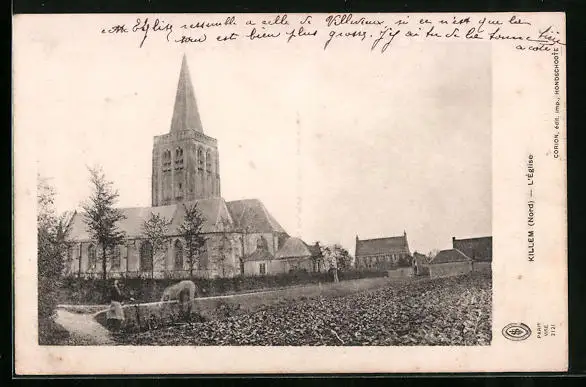 cette Église ressemble a celle de Villevieux si ce n'est que la
tour est bien plus grosse. J'y ai tu de la
a coté
KILLEM (Nord) — L'Église
CORION, édit. imp., HONDSCHOOTE
PARIS
VISÉ. 2121